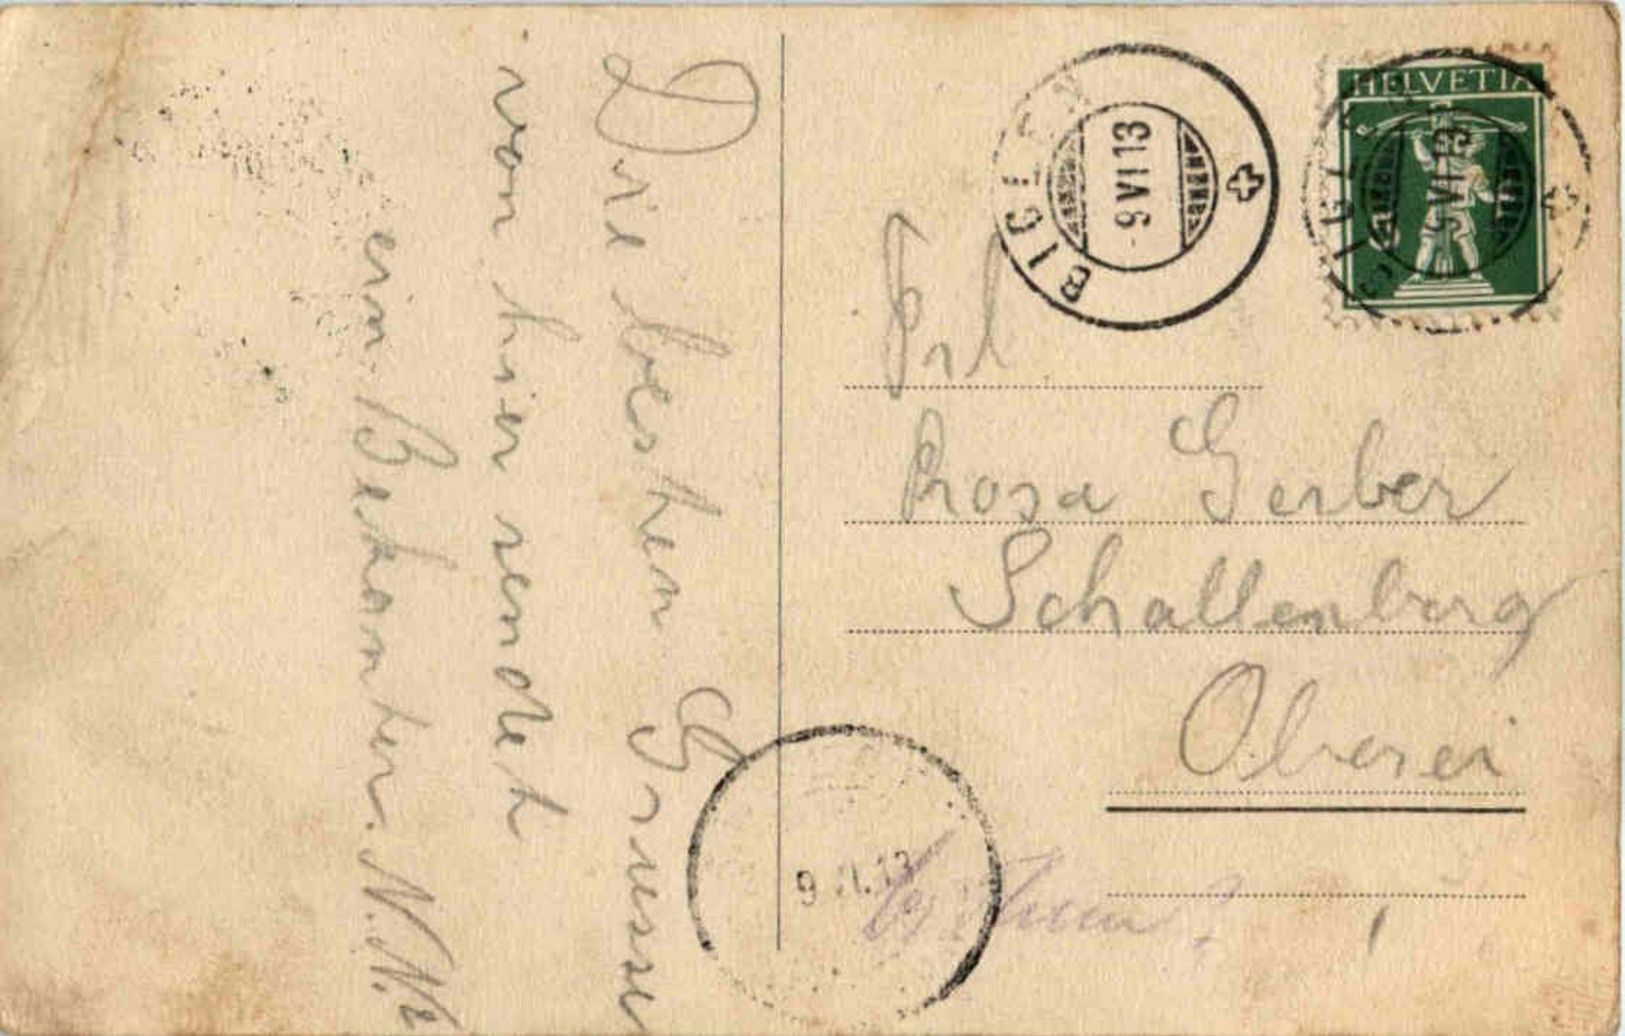 Die besten Grüsse
von hier sendet
ein Bekanter. N.N.
BIGLEN
-9 VI 13
HELVETIA
BIGLEN
9 VI 13
Frl
Rosa Gerber
Schallenberg
Oberei
9 VI.13
bei Thun?